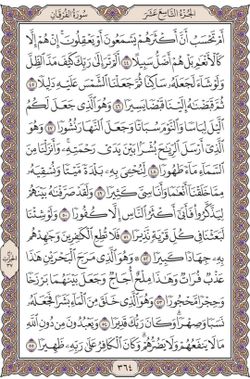 سُورَةُ الفُرْقَانِ
الجُزْءُ التَّاسِعَ عَشَرَ
أَمْ تَحْسَبُ أَنَّ أَكْثَرَهُمْ يَسْمَعُونَ أَوْ يَعْقِلُونَ ۚ إِنْ هُمْ إِلَّا
كَالْأَنْعَامِ ۖ بَلْ هُمْ أَضَلُّ سَبِيلًا ٤٤ أَلَمْ تَرَ إِلَىٰ رَبِّكَ كَيْفَ مَدَّ الظِّلَّ
وَلَوْ شَاءَ لَجَعَلَهُ سَاكِنًا ثُمَّ جَعَلْنَا الشَّمْسَ عَلَيْهِ دَلِيلًا ٤٥
ثُمَّ قَبَضْنَاهُ إِلَيْنَا قَبْضًا يَسِيرًا ٤٦ وَهُوَ الَّذِي جَعَلَ لَكُمُ
اللَّيْلَ لِبَاسًا وَالنَّوْمَ سُبَاتًا وَجَعَلَ النَّهَارَ نُشُورًا ٤٧ وَهُوَ
الَّذِي أَرْسَلَ الرِّيَاحَ بُشْرًا بَيْنَ يَدَيْ رَحْمَتِهِ ۚ وَأَنْزَلْنَا مِنَ
السَّمَاءِ مَاءً طَهُورًا ٤٨ لِنُحْيِيَ بِهِ بَلْدَةً مَيْتًا وَنُسْقِيَهُ
مِمَّا خَلَقْنَا أَنْعَامًا وَأَنَاسِيَّ كَثِيرًا ٤٩ وَلَقَدْ صَرَّفْنَاهُ بَيْنَهُمْ
لِيَذَّكَّرُوا فَأَبَىٰ أَكْثَرُ النَّاسِ إِلَّا كُفُورًا ٥٠ وَلَوْ شِئْنَا
لَبَعَثْنَا فِي كُلِّ قَرْيَةٍ نَذِيرًا ٥١ فَلَا تُطِعِ الْكَافِرِينَ وَجَاهِدْهُمْ
بِهِ جِهَادًا كَبِيرًا ٥٢ وَهُوَ الَّذِي مَرَجَ الْبَحْرَيْنِ هَٰذَا
عَذْبٌ فُرَاتٌ وَهَٰذَا مِلْحٌ أُجَاجٌ وَجَعَلَ بَيْنَهُمَا بَرْزَخًا
وَحِجْرًا مَحْجُورًا ٥٣ وَهُوَ الَّذِي خَلَقَ مِنَ الْمَاءِ بَشَرًا فَجَعَلَهُ
نَسَبًا وَصِهْرًا ۗ وَكَانَ رَبُّكَ قَدِيرًا ٥٤ وَيَعْبُدُونَ مِنْ دُونِ اللَّهِ
مَا لَا يَنْفَعُهُمْ وَلَا يَضُرُّهُمْ ۗ وَكَانَ الْكَافِرُ عَلَىٰ رَبِّهِ ظَهِيرًا ٥٥
٣٦٤